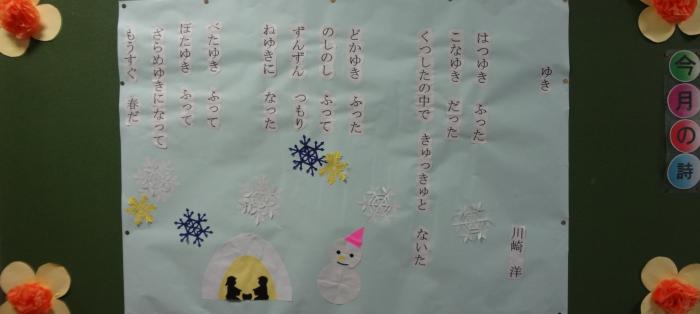 今月の詩
ゆき
川崎 洋
はつゆき ふった
こなゆき だった
くつしたの中で きゅっきゅと ないた
どかゆき ふった
のしのし ふって
ずんずん つもり
ねゆきに なった
べたゆき ふって
ぼたゆき ふって
ざらめゆきになって
もうすぐ 春だ